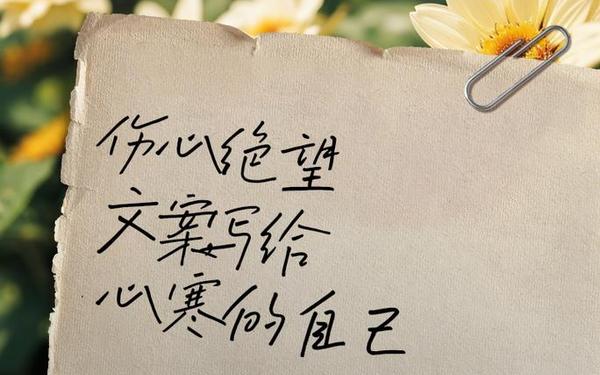 伤心绝望
文案写给
心寒的自己